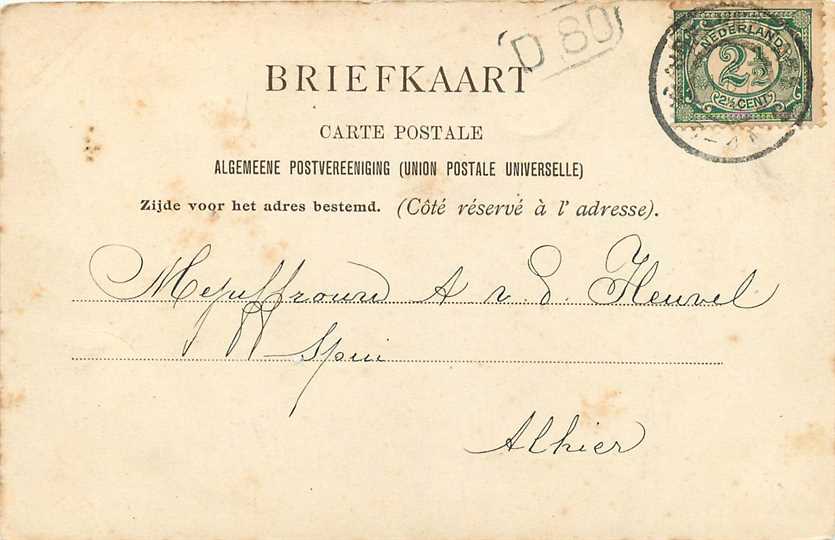 D 80
NEDERLAND
2½
2½ CENT
BRIEFKAART
CARTE POSTALE
ALGEMEENE POSTVEREENIGING (UNION POSTALE UNIVERSELLE)
Zijde voor het adres bestemd. (Côté réservé à l'adresse).
Mejuffrouw A. v. d. Heuvel
Spui
Alhier